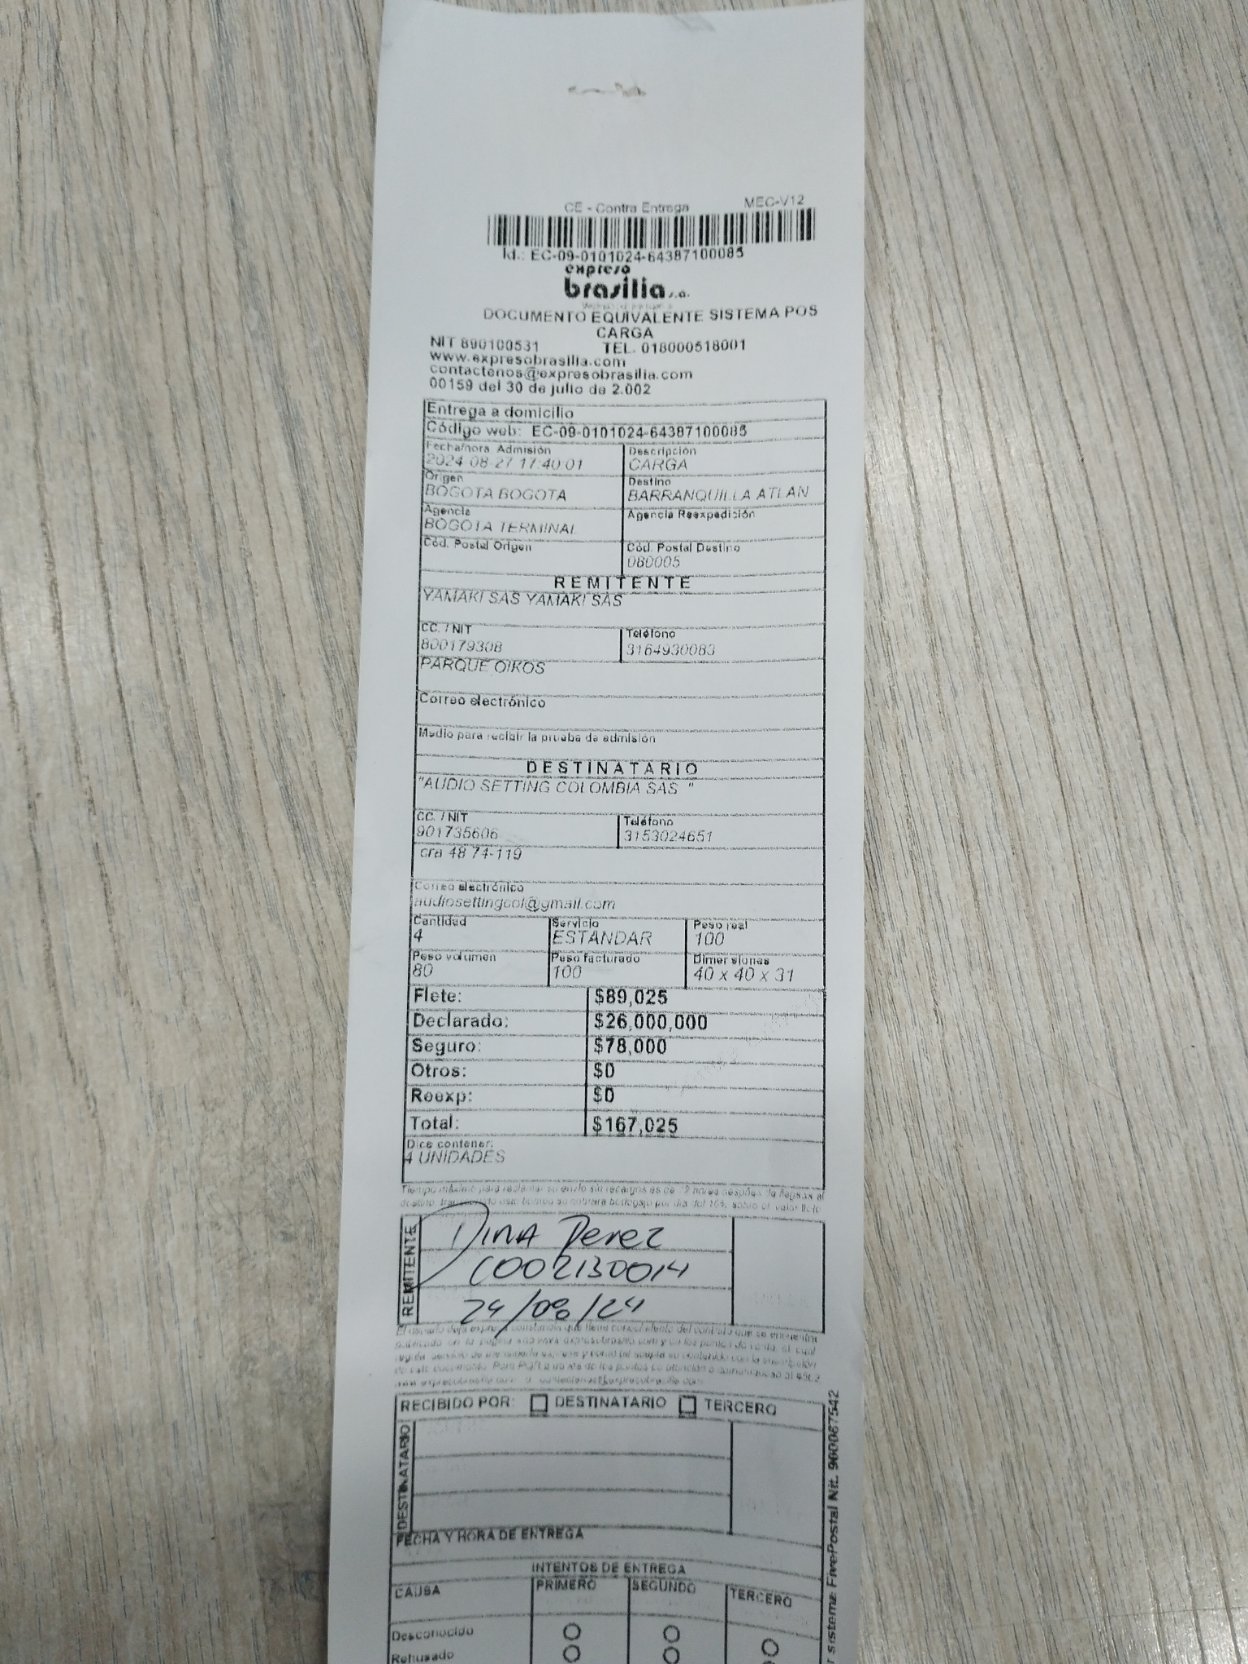 CE - Contra Entrega MEC-V12
Id.: EC-09-0101024-64387100085
expreso
brasilia s.a.
DOCUMENTO EQUIVALENTE SISTEMA POS
CARGA
NIT 890100531 TEL. 018000518001
www.expresobrasilia.com
contactenos@expresobrasilia.com
00159 del 30 de julio de 2.002
Entrega a domicilio
Código web: EC-09-0101024-64387100085
Fecha/hora Admisión Descripción
2024-08-27 17:40:01 CARGA
Origen Destino
BOGOTA BOGOTA BARRANQUILLA ATLAN
Agencia Agencia Reexpedición
BOGOTA TERMINAL
Cód. Postal Origen Cód. Postal Destino
080005
REMITENTE
YAMAKI SAS YAMAKI SAS
CC. / NIT Teléfono
800179308 3164930083
PARQUE OIKOS
Correo electrónico
Medio para recibir la prueba de admisión
DESTINATARIO
"AUDIO SETTING COLOMBIA SAS "
CC. / NIT Teléfono
901735606 3153024651
cra 48 74-119
Correo electrónico
audiosettingcol@gmail.com
Cantidad Servicio Peso real
4 ESTANDAR 100
Peso volumen Peso facturado Dimensiones
80 100 40 x 40 x 31
Flete: $89,025
Declarado: $26,000,000
Seguro: $78,000
Otros: $0
Reexp: $0
Total: $167,025
Dice contener:
4 UNIDADES
REMITENTE
Dina Perez
1002130014
24/08/24
RECIBIDO POR: DESTINATARIO TERCERO
DESTINATARIO
FECHA Y HORA DE ENTREGA
INTENTOS DE ENTREGA
CAUSA PRIMERO SEGUNDO TERCERO
Desconocido
Rehusado
sistema FivePostal Nit. 900087542